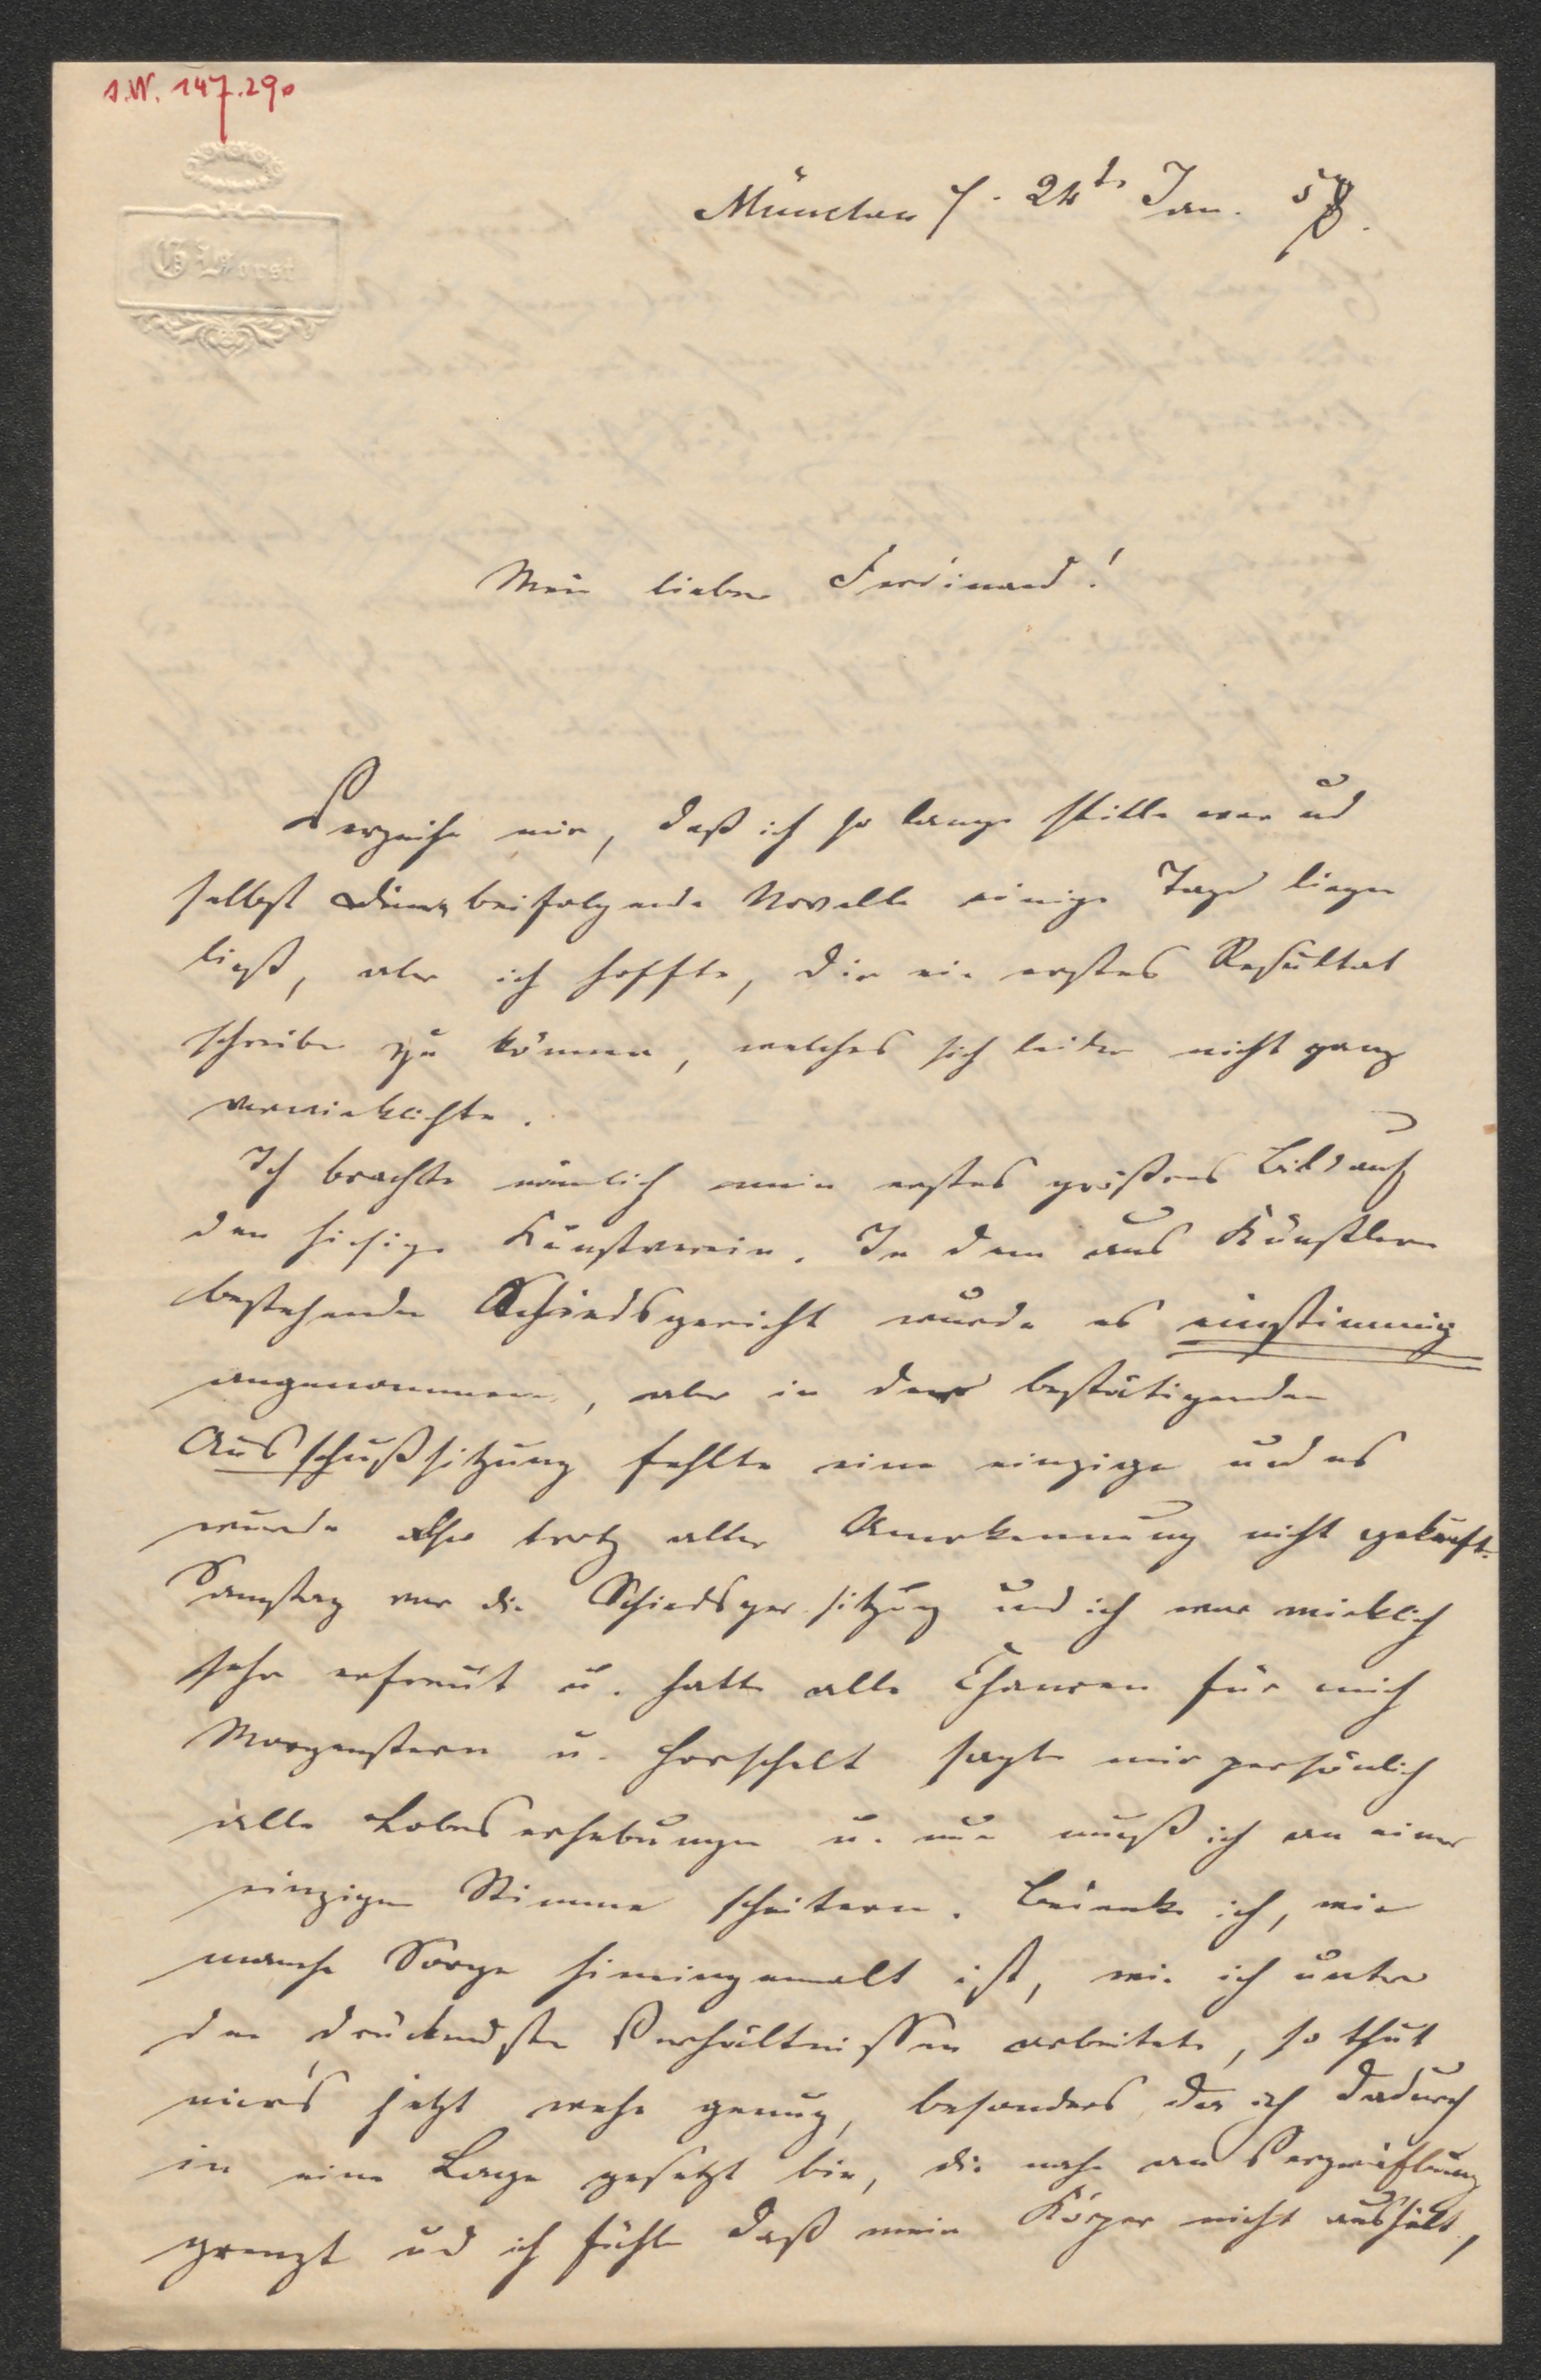 I.N. 147.290
G Horst
München 24t Jan. 58.
Mein lieber Ferdinand!
Verzeihe mir, daß ich so lange stille war und
selbst Deine beifolgende Novelle einige Tage liegen
ließ, aber ich hoffte, Dir ein erstes Resultat
schreiben zu können, welches sich leider nicht ganz
verwirklichte.
Ich brachte nämlich mein erstes größeres Bild auf
den hiesigen Kunstverein. In dem aus Künstlern
bestehenden Schiedsgericht wurde es einstimmig
angenommen, aber in der bestätigenden
Ausschußsitzung fehlte eine einzige und es
wurde also trotz aller Anerkennung nicht gekauft.
Samstag war die Schiedsger. sitzung und ich war wirklich
sehr erfreut u. hatte alle Chancen für mich
Morgenstern u. Horschelt sagten mir persönlich
alle Lobeserhebungen u. nun muß ich an einer
einzigen Stimme scheitern. Bedenke ich, wie
manche Sorge hineingemalt ist, wie ich unter
den drückendsten Verhältnissen arbeitete, so thut
mir's jetzt wehe genug, besonders da ich dadurch
in eine Lage gesetzt bin, die nahe an Verzweiflung
grenzt und ich fühle daß mein Körper nicht aushält,